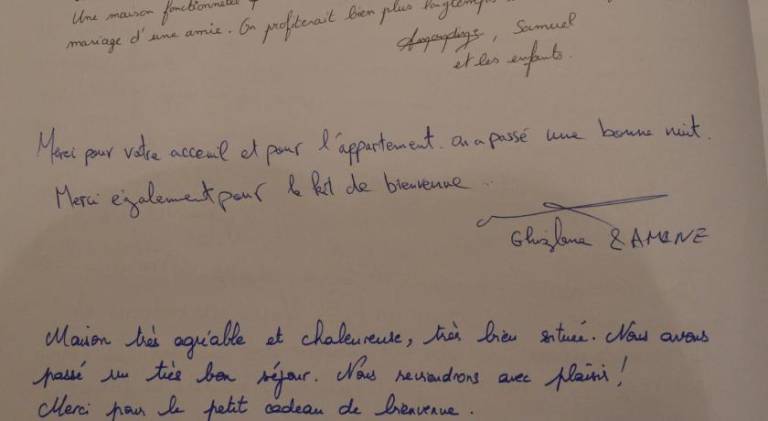 Une maison fonctionnelle
mariage d'une amie. On profiterait bien plus longtemps
, Samuel
et les enfants.
Merci pour votre acceuil et pour l'appartement. On a passé une bonne nuit.
Merci également pour le kit de bienvenue..
Ghizlane & AMINE
Maison très agréable et chaleureuse, très bien située. Nous avons
passé un très bon séjour. Nous reviendrons avec plaisir!
Merci pour le petit cadeau de bienvenue.